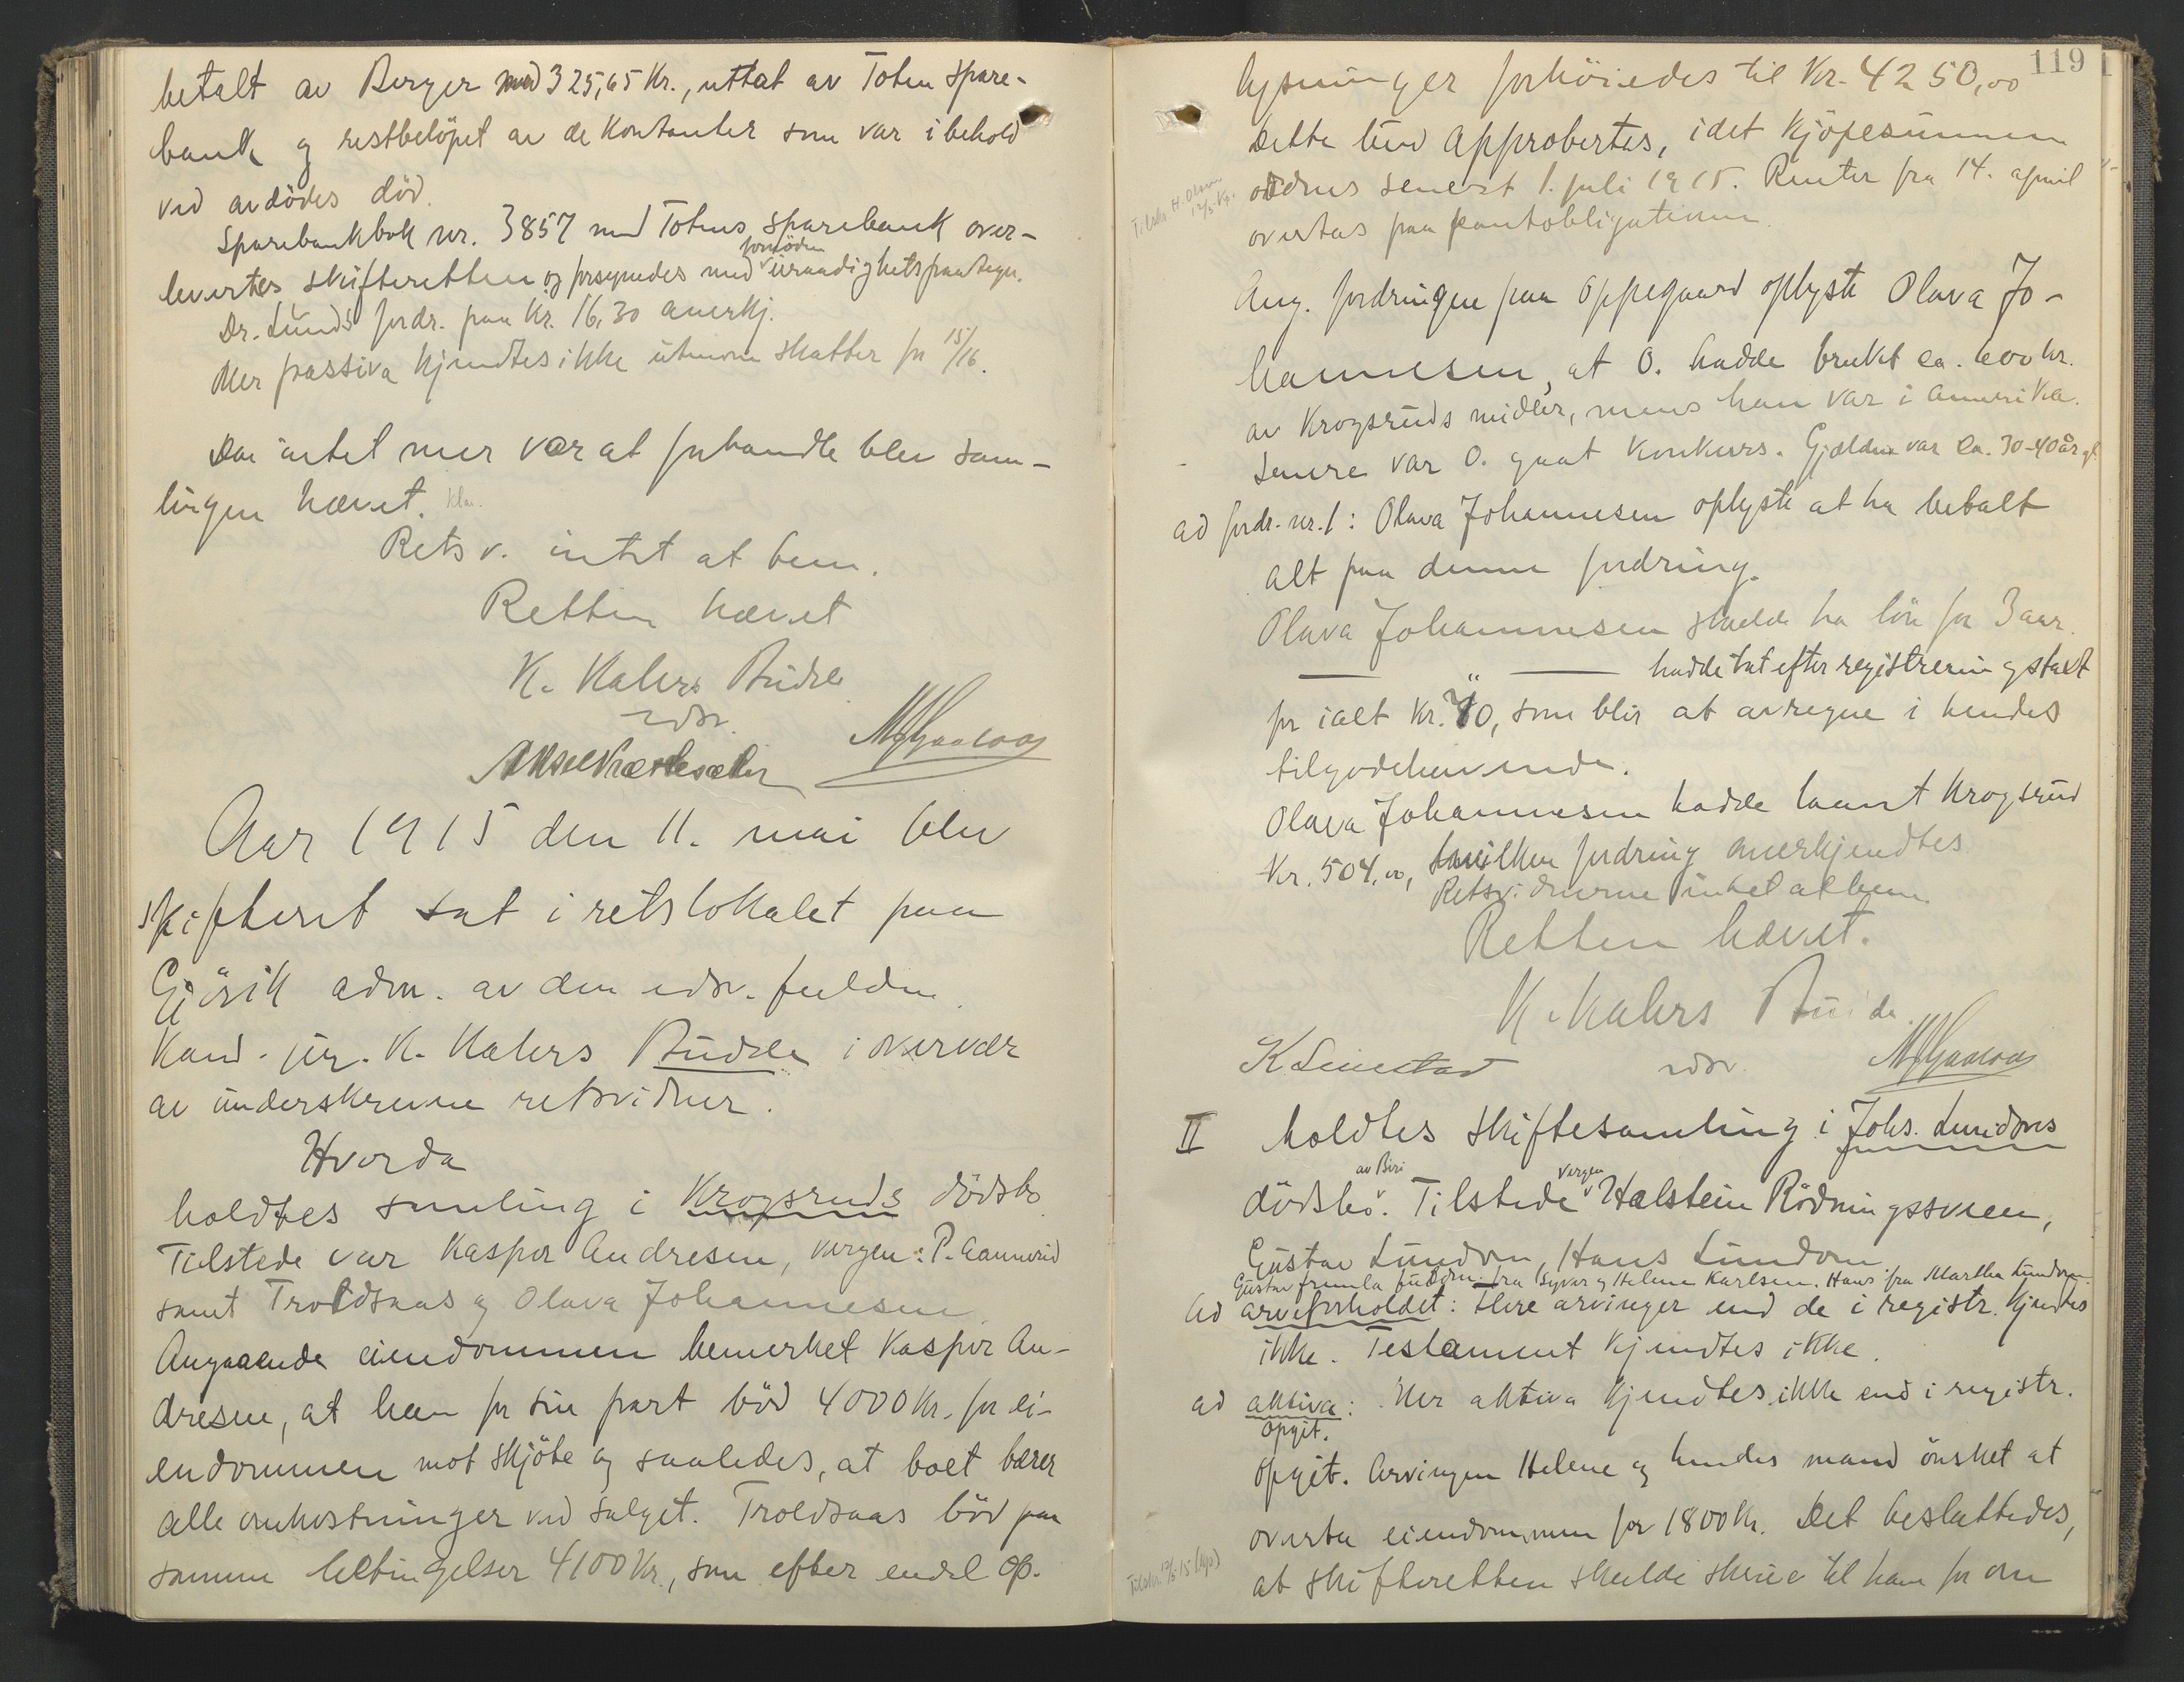 betalt av Berger med 325,65 Kr., uttat av Toten Spare-
bank og restbeløpet av de Kontanter som var i behold
ved avdödes död.
Sparebankbok nr. 3857 med Totens Sparebank over-
fornöden
levertes skifteretten og forsynedes med uraadighetspaategn.
Dr. Lunds fordr. paa Kr. 16,30 anerkj.
Mer passiva kjendtes ikke utenom skatter for 15/16.
Da intet mer var at forhandle blev sam-
lingen hævet.
Retsv. intet at bem.
Retten hævet
K. Kahrs Budde
edsv.
Aar 1915 den 11. mai blev
skifteret sat i retslokalet paa
Gjövik adm. av den edsv. fuldm.
Kand. jur. K. Kahrs Budde i overvær
av underskrevne retsvidner.
Hvorda
holdtes samling i Krogsruds dödsbo.
Tilstede var Kaspor Andresen, vergen: P. Aamerud
samt Troldsaas og Olava Johannesen.
Angaaende eiendommen bemerket Kaspor An-
dresen, at han for sin part böd 4000 Kr. for ei-
endommen mot skjöte og saaledes, at boet bærer
alle omkostninger ved salget. Troldsaas böd paa
samme betingelser 4100 Kr., som efter endel op-
119
lysninger forhöiedes til Kr. 4250,00
Dette bud approbertes, idet kjöpesummen
ordnes senest 1. juli 1915. Renter fra 14. april
overtas paa pantobligationen.
Ang. fordringen paa Oppegaard oplyste Olava Jo-
hannesen, at O. hadde brukt ca. 600 kr.
av Krogsruds midler, mens han var i Amerika.
Senere var O. gaat konkurs. Gjælden var ca. 30-40 år gl.
ad fordr. nr. 1: Olava Johannesen oplyste at ha betalt
alt paa denne fordring.
Olava Johannesen skulde ha lön for 3 aar.
— " — hadde tat efter registreringstakst
for ialt Kr. 70, som blir at avregne i hendes
tilgodehavende.
Olava Johannesen hadde laant Krogsrud
Kr. 504,00, hvilken fordring anerkjendtes.
Retsvidnerne intet at bem.
Retten hævet.
K. Kahrs Budde.
edsv.
II holdtes skiftesamling i Johs. Lundens
av Biri vergen
dödsbo. Tilstede Halstein Rödningssveen,
Gustav Lunden, Hans Lunden.
ad arveforholdet: Flere arvinger end de i registr. kjendtes
ikke. Testament kjendtes ikke.
ad aktiva: Mer aktiva kjendtes ikke end i registr.
opgit.
opgit. Arvingen Helene og hendes mand önsket at
overta eiendommen for 1800 Kr. Det besluttedes,
at skifteretten skulde skrive til ham for om